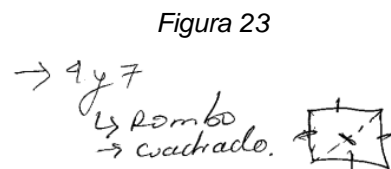 Figura 23
→ 4 y 7
↳ Rombo
→ cuadrado.